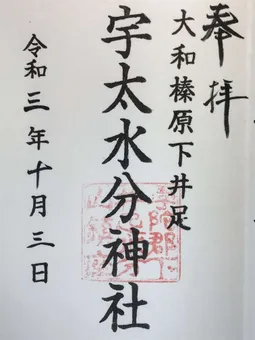 奉拝
大和榛原下井足
宇太水分神社
令和三年十月三日